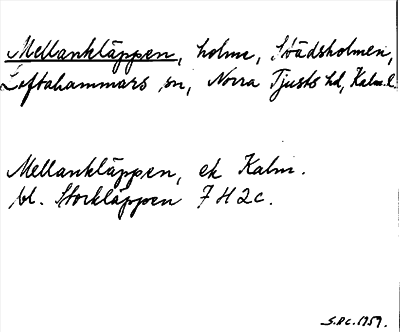 Mellankläppen, holme, Svädsholmen,
Loftahammars sn, Norra Tjusts hd, Kalm. l.
Mellankläppen, ek Kalm.
bl. Storkläppen 7 H 2 c.
1959.